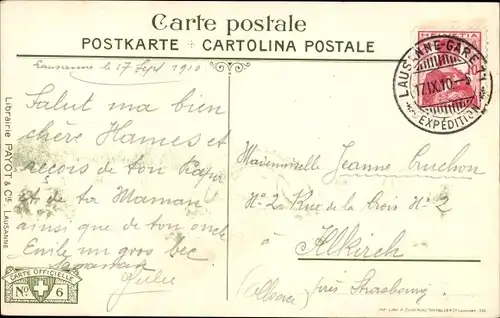 Carte postale
POSTKARTE · CARTOLINA POSTALE
Lausanne le 17 Sept 1910
Salut ma bien
chère Hames et
reçois de ton Papa
et de ta Maman
ainsi que de ton oncle
Emile un gros bec
Julie
HELVETIA
LAUSANNE-GARE
17.IX.10
EXPÉDITION
Mademoiselle Jeanne Cuchon
No 2 Rue de la Croix No 2
à
Altkirch
(Alsace) près Strasbourg
Librairie PAYOT & Cie LAUSANNE
CARTE OFFICIELLE
No 6